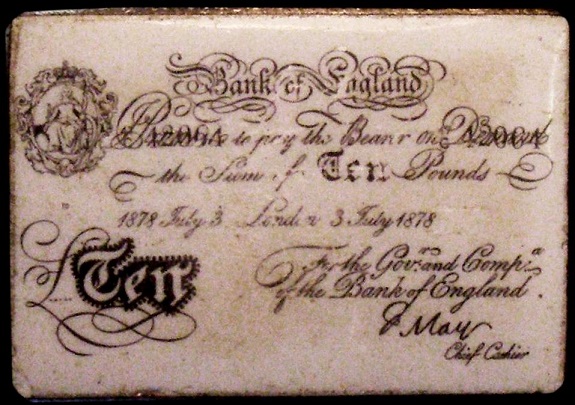 Bank of Eagland
to pay the Bearer on
the Sum of Ten Pounds
1878 July 3 London 3 July 1878
£Ten
For the Govr. and Compa.
of the Bank of England.
F May
Chief Cashier